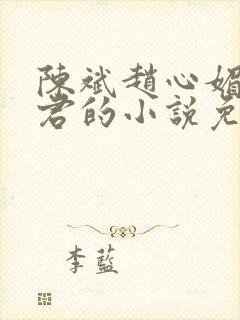 陳斌趙心媚
君的小說免
李藍